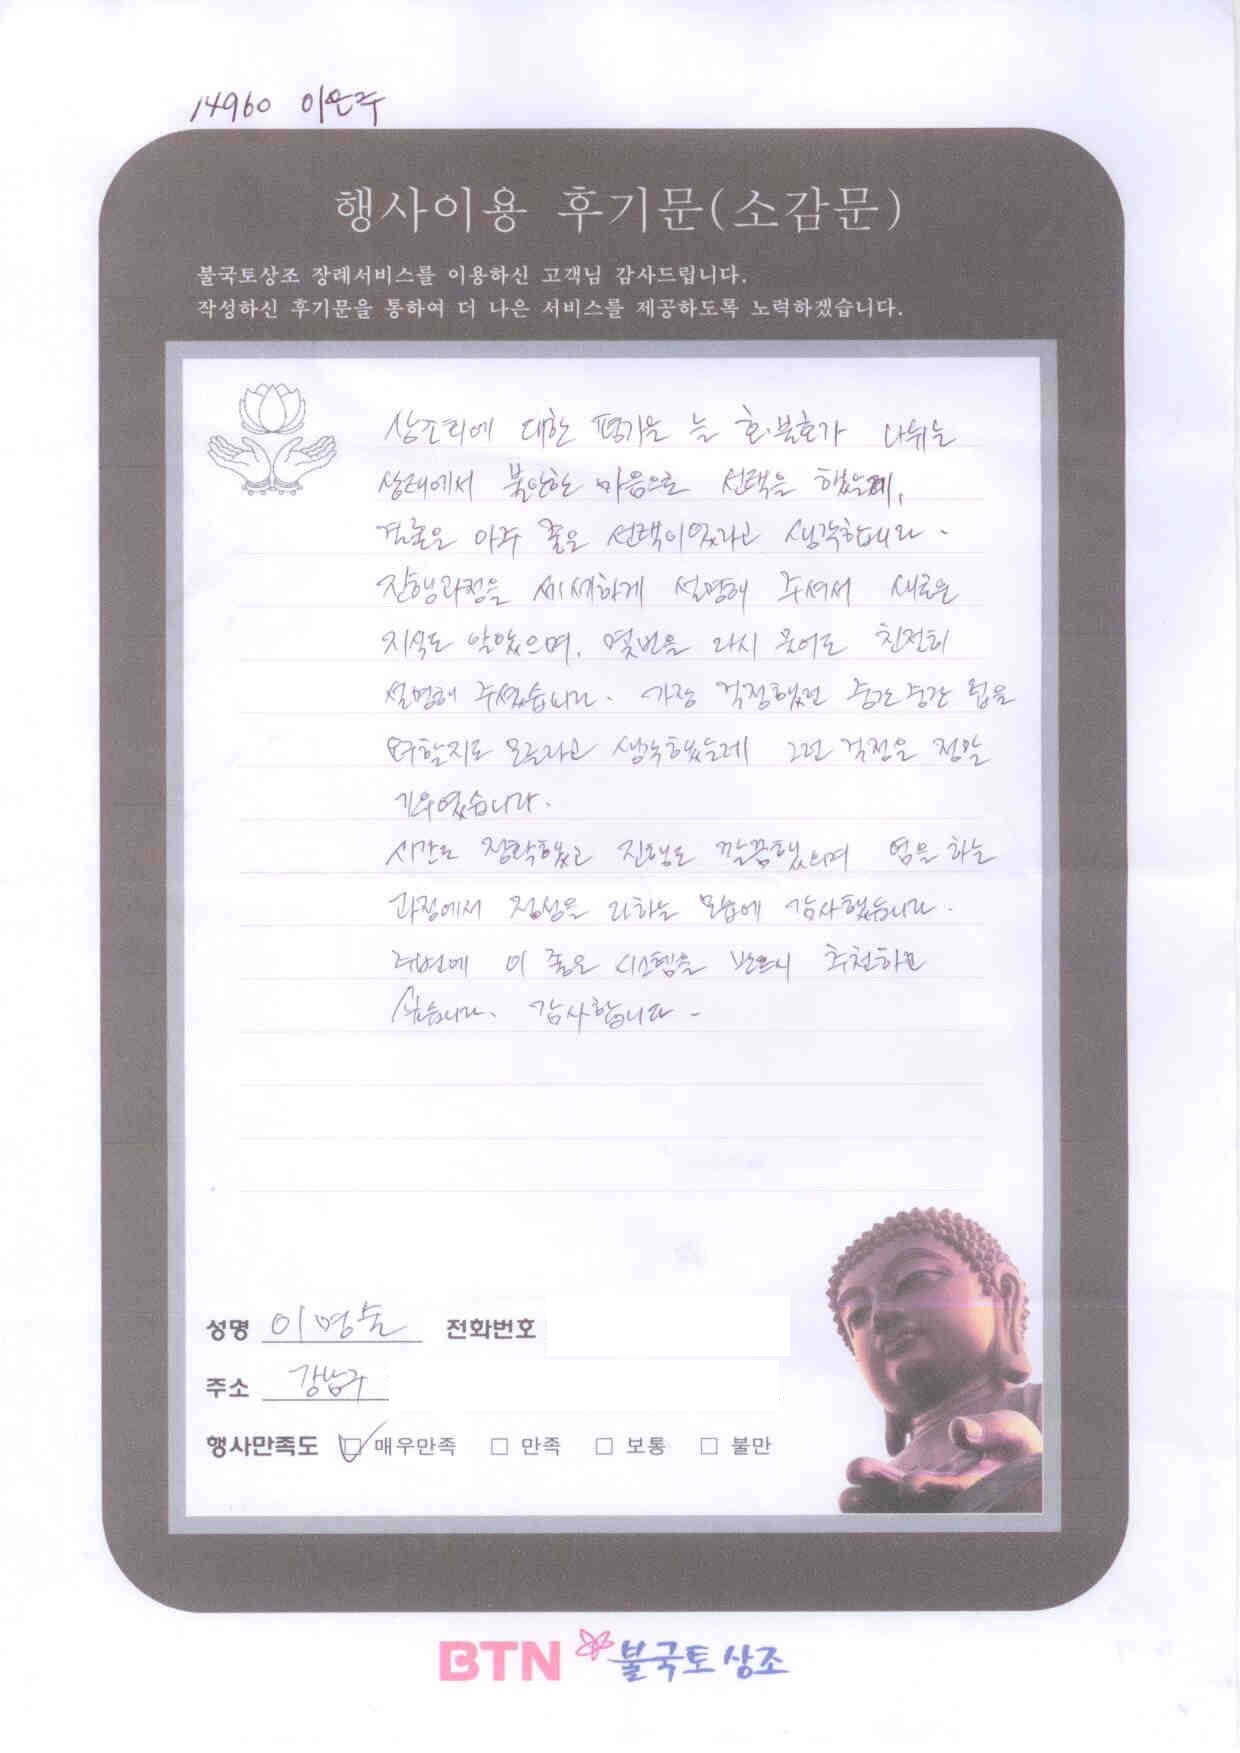 14960 이은주
행사이용 후기문(소감문)
불국토상조 장례서비스를 이용하신 고객님 감사드립니다.
작성하신 후기문을 통하여 더 나은 서비스를 제공하도록 노력하겠습니다.
상조회에 대한 평가는 늘 호.불호가 나뉘는
상태에서 불안한 마음으로 선택을 했는데,
결론은 아주 좋은 선택이었다고 생각합니다.
진행과정을 세세하게 설명해 주셔서 새로운
지식도 알았으며, 몇번을 다시 물어도 친절히
설명해 주셨습니다. 가장 걱정했던 중간중간 팁을
요구할지도 모른다고 생각했는데 그런 걱정은 정말
기우였습니다.
시간도 정확했고 진행도 깔끔했으며 염을 하는
과정에서 정성을 다하는 모습에 감사했습니다.
주변에 이 좋은 시스템을 반드시 추천하고
싶습니다. 감사합니다.
성명 이명술 전화번호
주소 강남구
행사만족도 ☑ 매우만족 □ 만족 □ 보통 □ 불만
BTN 불국토상조